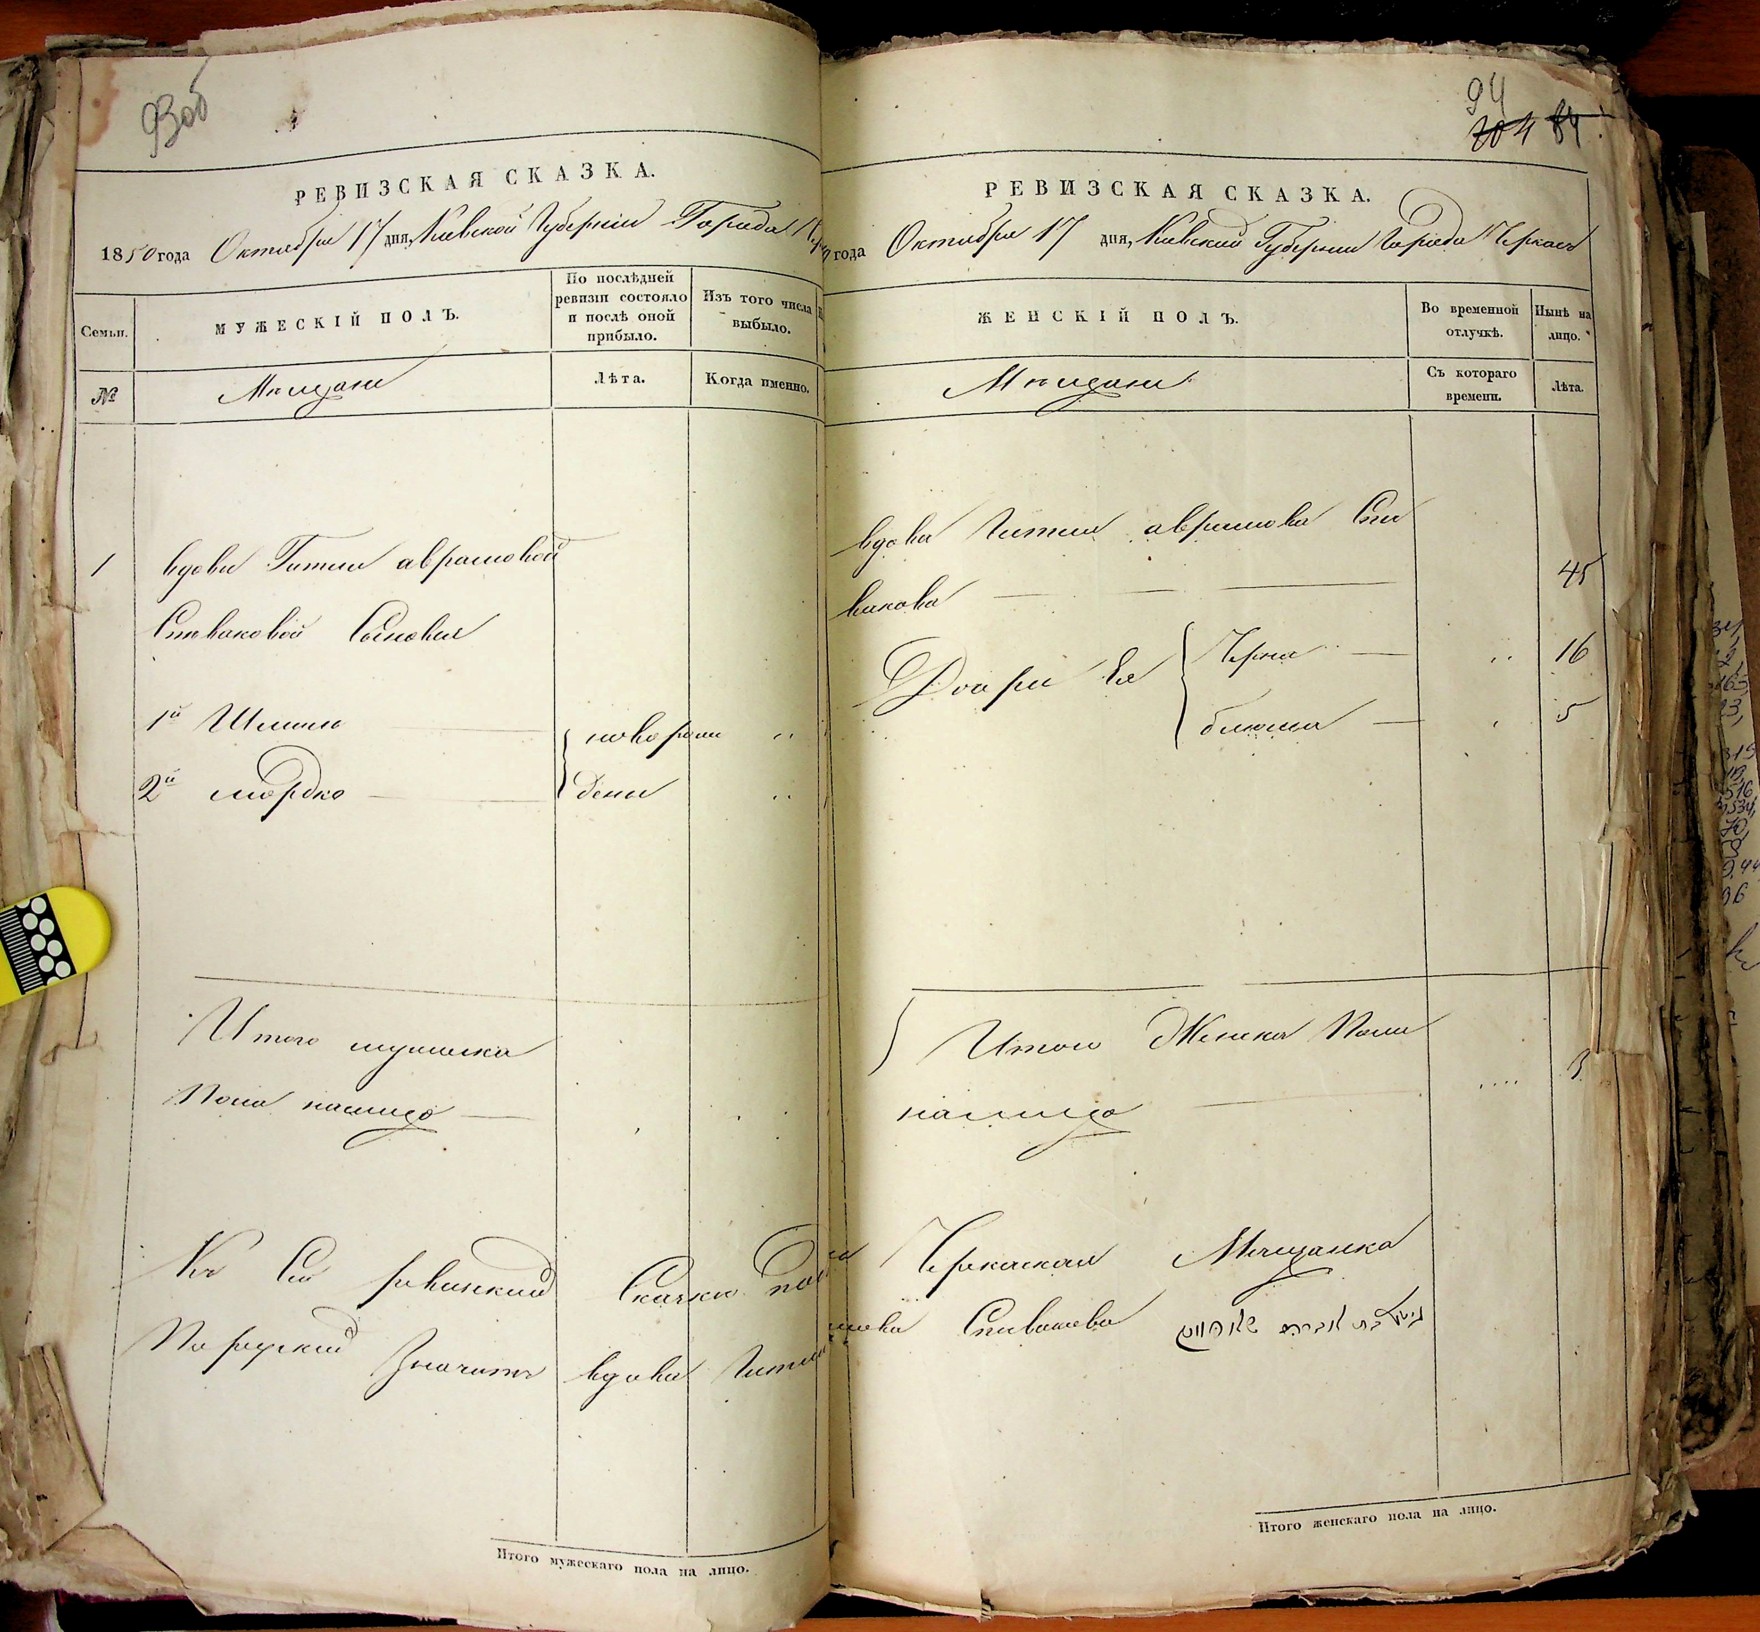 93об
РЕВИЗСКАЯ СКАЗКА.
1850 года Октября 17 дня, Киевской Губернии Города
Семьи.
МУЖЕСКІЙ ПОЛЪ.
По послѣдней ревизіи состояло и послѣ оной прибыло.
Изъ того числа выбыло.
№
Мѣщане
Лѣта.
Когда именно.
1 вдовы Гитли аврамовой
Спиваковой Сыновья
1й Шлиома
2й мордко
новорож
дены
Итого мужеска
Пола налицо
Къ Сей ревизской Скаски
вдова Гитля
Итого мужескаго пола на лицо.
94
204 84
РЕВИЗСКАЯ СКАЗКА.
года Октября 17 дня, Киевской Губернии Города Черкас
ЖЕНСКІЙ ПОЛЪ.
Во временной отлучкѣ.
Нынѣ на лицо.
Мѣщане
Съ котораго времени.
Лѣта.
вдова Гитля аврамова Спи
вакова 45
Дочери Ея
Черна 16
блюма 5
Итого Женска Пола
налицо 3
Черкаская Мещанка
Спивакова
Итого женскаго пола на лицо.